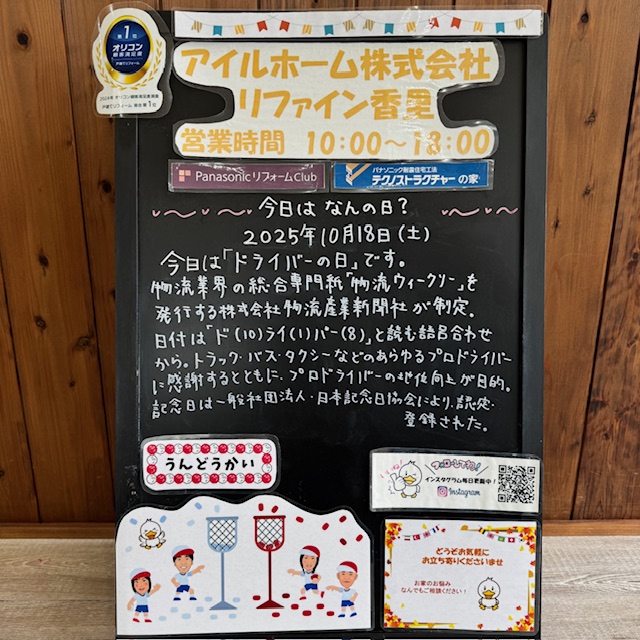 第1位
オリコン
顧客満足度
戸建てリフォーム
2024年 オリコン顧客満足度調査
戸建てリフォーム 総合 第1位
アイルホーム株式会社
リファイン香里
営業時間 10:00～18:00
Panasonic リフォームClub
パナソニック耐震住宅工法
テクノストラクチャーの家
今日は なんの日？
2025年10月18日(土)
今日は「ドライバーの日」です。
物流業界の総合専門紙「物流ウィークリー」を
発行する株式会社物流産業新聞社が制定。
日付は「ド(10)ライ(1)バー(8)」と読む語呂合わせ
から。トラック・バス・タクシーなどのあらゆるプロドライバー
に感謝するとともに、プロドライバーの地位向上が目的。
記念日は一般社団法人・日本記念日協会により、認定・
登録された。
うんどうかい
いいね!
フォローしてね!
インスタグラム毎日更新中!
Instagram
どうぞお気軽に
お立ち寄りくださいませ
お家のお悩み
なんでもご相談ください!